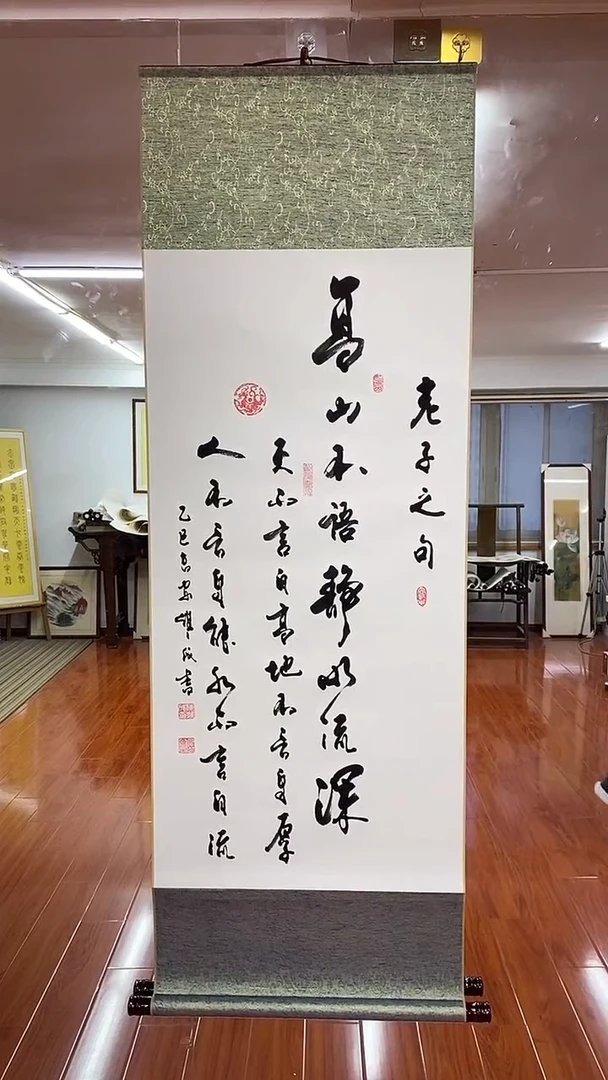 老子之句
高山不语静水流深
天不言自高地不言自厚
人不言自能水不言自流
乙巳
书